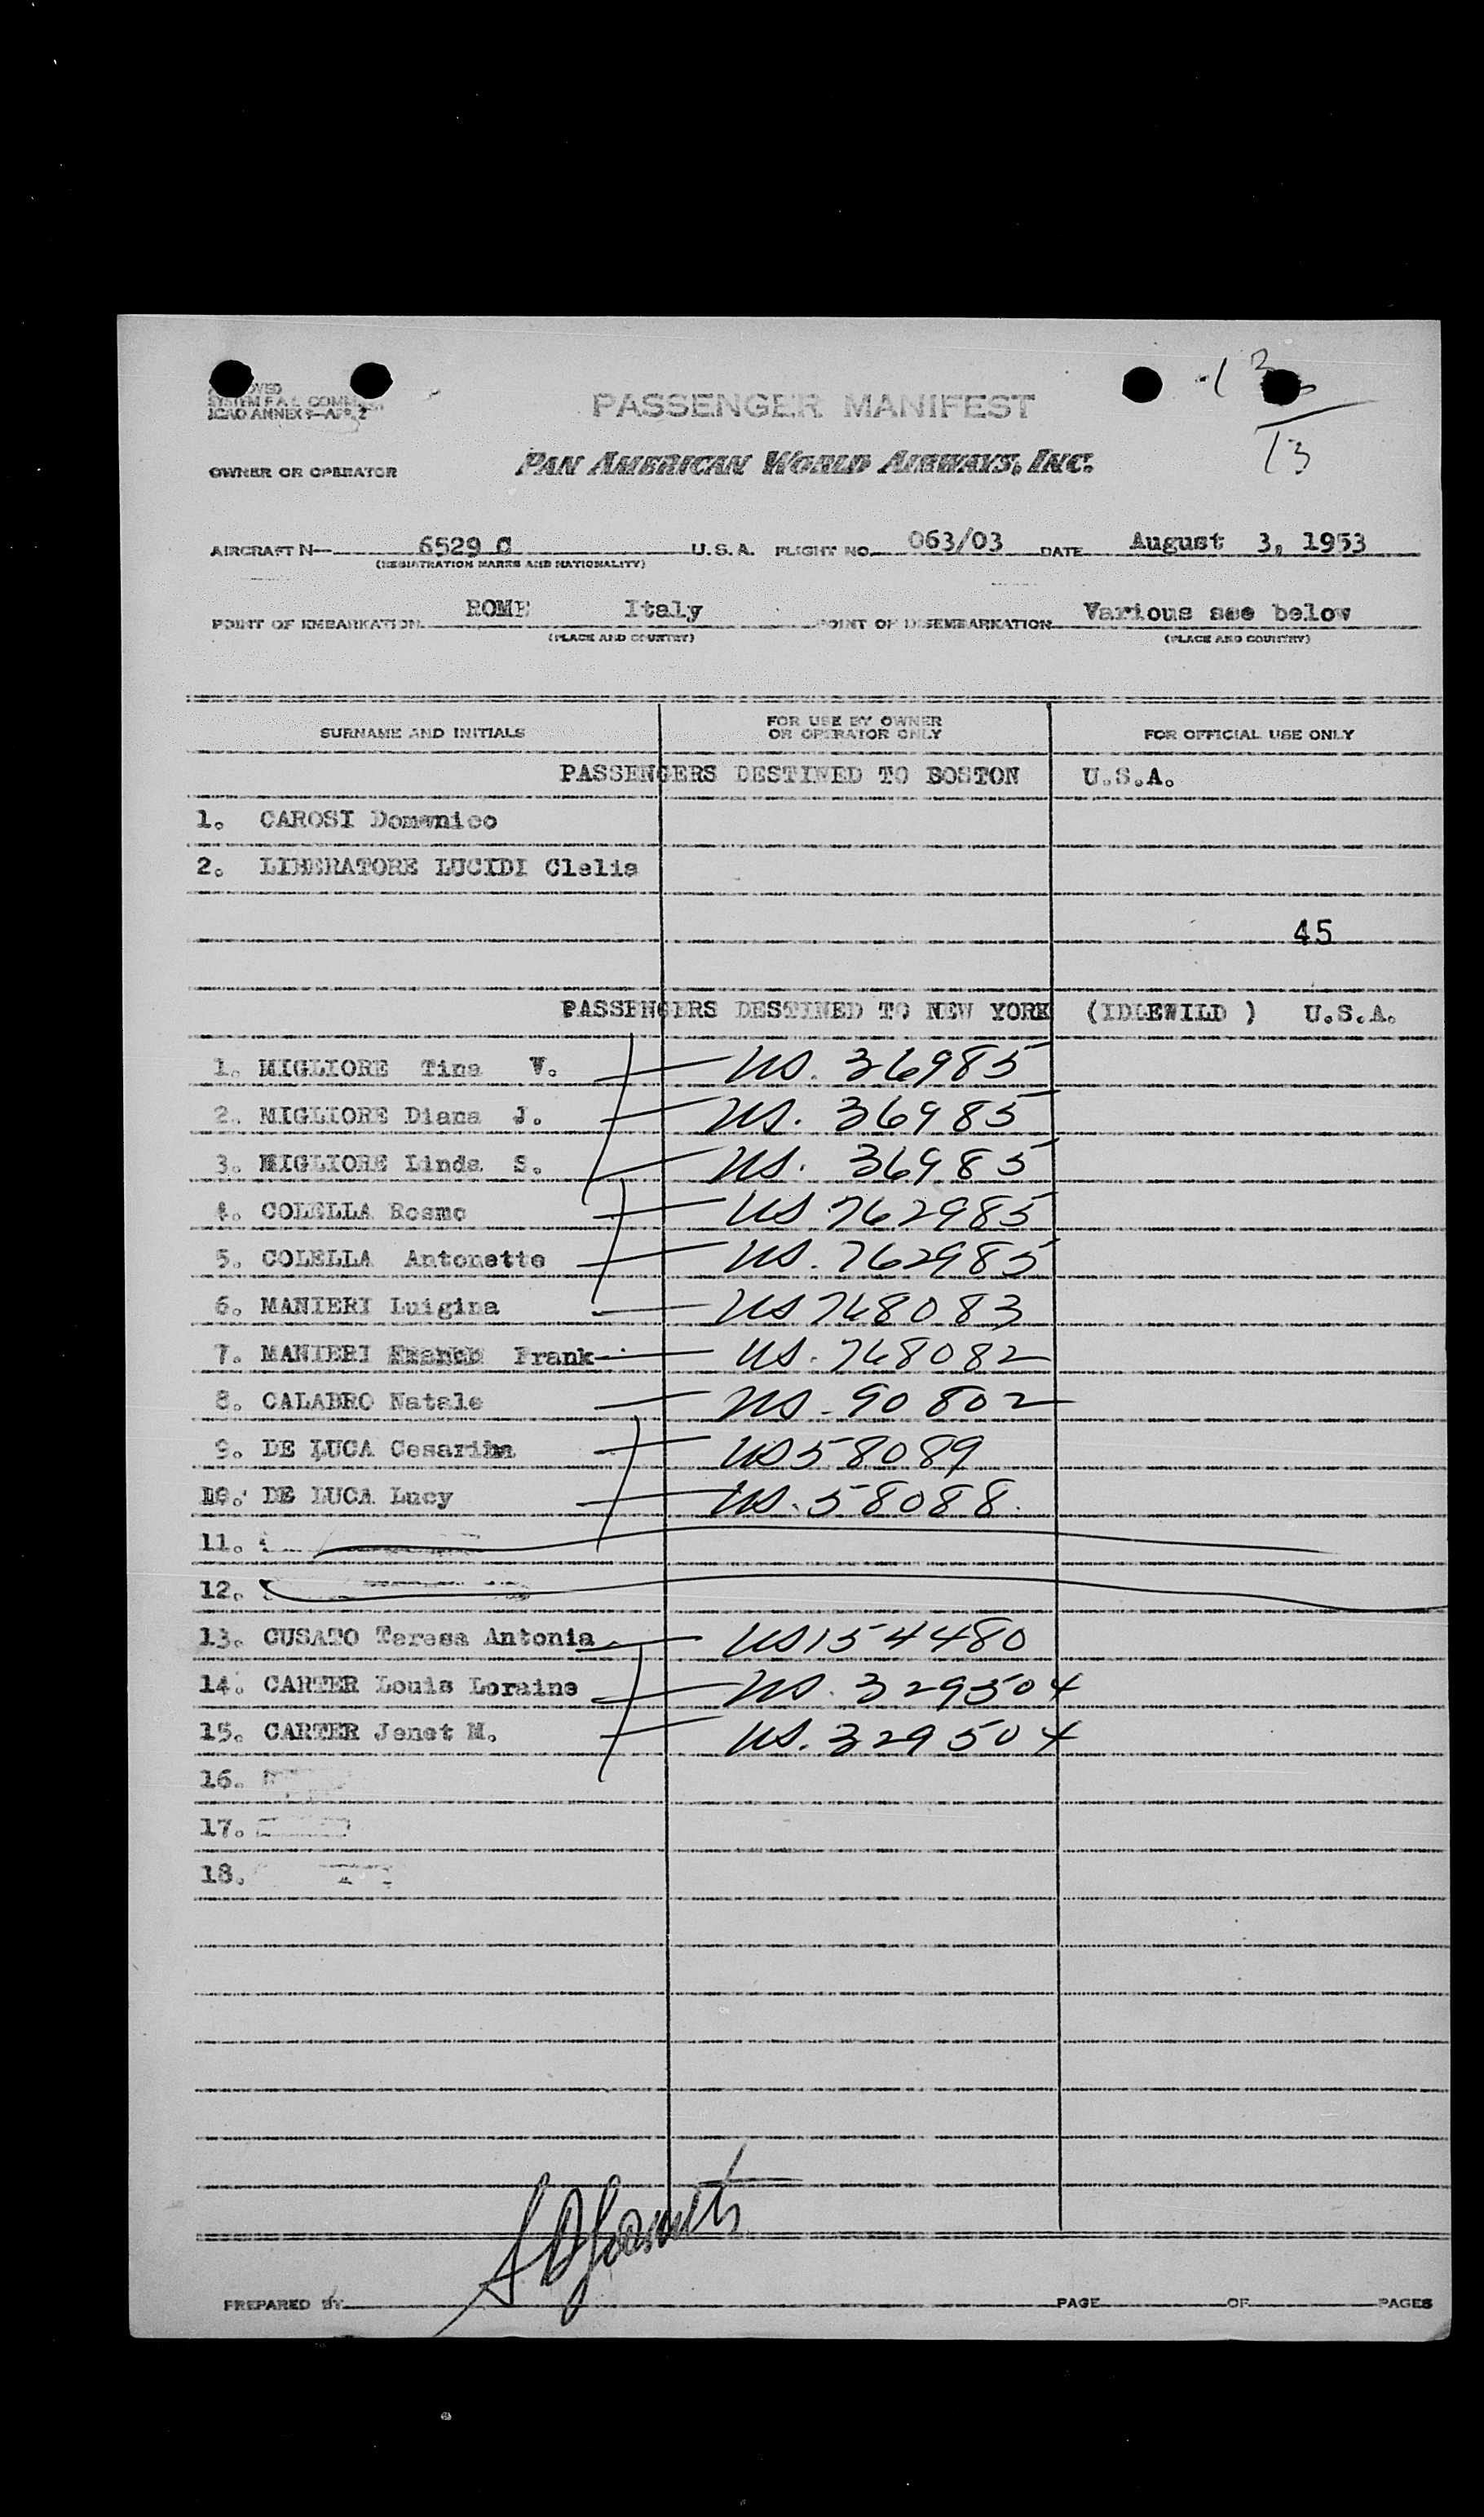 APPROVED
SYSTEM F.A.L. COMM.
ICAO ANNEX 9—APP. 2
13
PASSENGER MANIFEST
13
OWNER OR OPERATOR PAN AMERICAN WORLD AIRWAYS, INC.
AIRCRAFT N— 6529 C U.S.A. FLIGHT NO. 063/03 DATE August 3, 1953
(REGISTRATION MARKS AND NATIONALITY)
POINT OF EMBARKATION ROME Italy POINT OF DISEMBARKATION Various see below
(PLACE AND COUNTRY) (PLACE AND COUNTRY)
SURNAME AND INITIALS FOR USE BY OWNER OR OPERATOR ONLY FOR OFFICIAL USE ONLY
PASSENGERS DESTINED TO BOSTON U.S.A.
1. CAROSI Domenico
2. LIBERATORE LUCIDI Clelia
45
PASSENGERS DESTINED TO NEW YORK (IDLEWILD ) U.S.A.
1. MIGLIORE Tina V. — US. 36985
2. MIGLIORE Diana J. — US. 36985
3. MIGLIORE Linda S. — US. 36985
4. COLELLA Rosmo — US 762985
5. COLELLA Antonette — US. 762985
6. MANIERI Luigina — US 768083
7. MANIERI Frank — US. 768082
8. CALABRO Natale — US. 90802
9. DE LUCA Cesarina — US 58089
10. DE LUCA Lucy — US. 58088
11.
12.
13. CUSATO Teresa Antonia — US 154480
14. CARTER Louis Loraine — US. 329504
15. CARTER Janet M. — US. 329504
16.
17.
18.
PREPARED BY PAGE OF PAGES